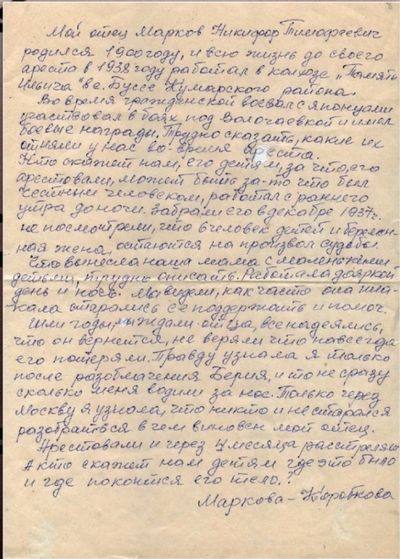 Мой отец Марков Никифор Тимофеевич
родился 1900 году, и всю жизнь до своего
ареста в 1938 году работал в колхозе „Память
Ильича" в с. Буссе Кумарского района.
Во время гражданской воевал с японцами
участвовал в боях под Волочаевкой и имел
боевые награды. Трудно сказать, какие их
отняли у нас во время ареста.
Кто скажет нам, его детям, за что его
арестовали, может быть за-то что был
честным человеком, работал с раннего
утра до ночи. Забрали его в декабре 1937 г.
не посмотрели, что 6 человек детей и беремен-
ная жена, остаются на произвол судьбы.
Что вынесла наша мама с маленькими
детьми, трудно описать. Работала дояркой
день и ночь. Мы видели, как часто она пла-
кала старались её поддержать и помочь.
Шли годы, мы ждали отца, все надеялись,
что он вернется, не верили что навсегда
его потеряли. Правду узнала я только
после разоблачения Берия, и то не сразу
сколько меня водили за нос. Только через
Москву я узнала, что никто и не старался
разобраться в чем виновен мой отец.
Арестовали и через 4 месяца расстреляли
А кто скажет нам детям где это было
и где покоится его тело?
Маркова - Коробкова